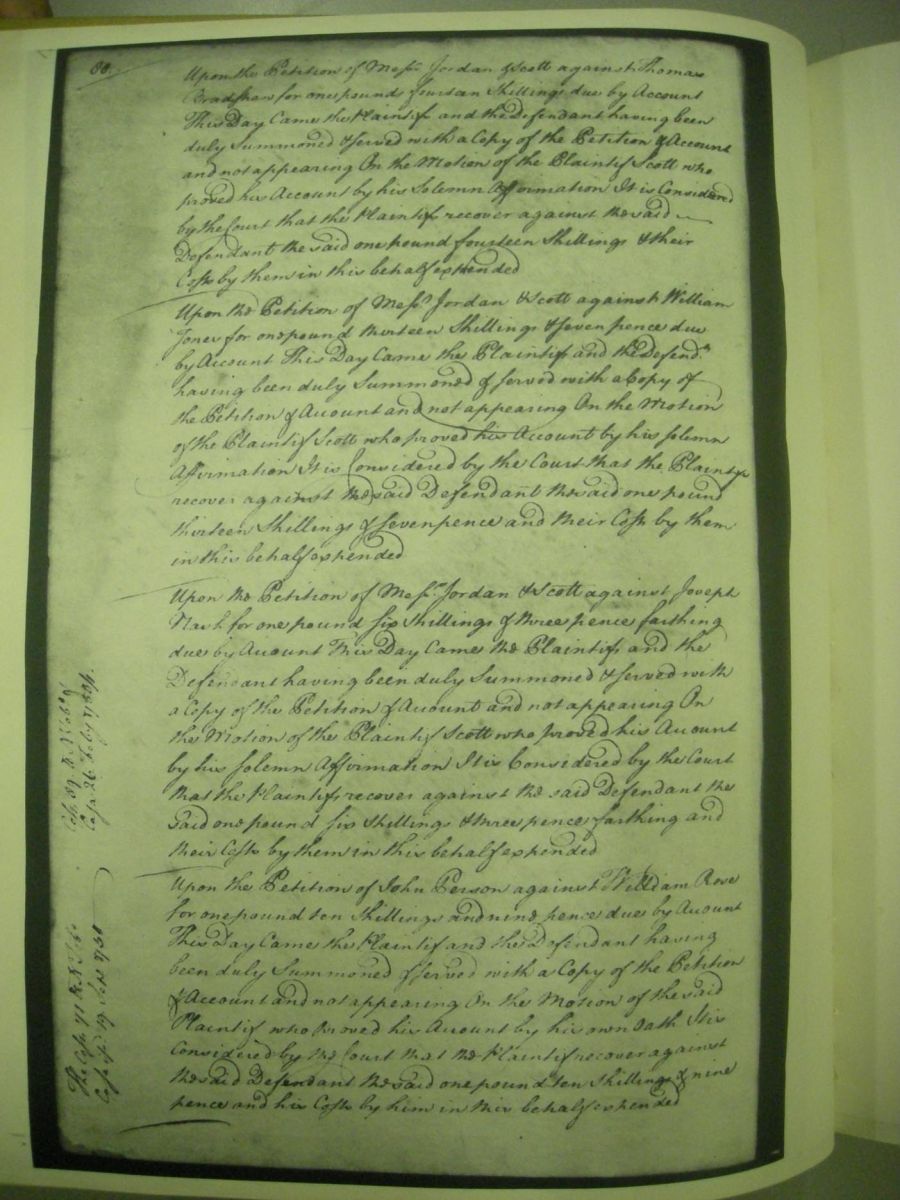 80.
Upon the Petition of Messrs Jordan & Scott against Thomas
for one pounds fourteen Shillings due by Account
This Day Came the Plaintifs and the Defendant having been
duly Summoned & served with a Copy of the Petition & Account
and not appearing On the Motion of the Plaintif Scott who
proved his Account by his Solemn Affirmation It is Considered
by the Court that the Plaintifs recover against the said
Defendant the said one pound fourteen Shillings & their
Costs by them in this behalf expended
Upon the Petition of Messrs Jordan & Scott against William
Jones for one pound thirteen Shillings & seven pence due
by Account This Day Came the Plaintifs and the Defendt
having been duly Summoned & served with a Copy of
the Petition & Account and not appearing On the Motion
of the Plaintif Scott who proved his Account by his solemn
Affirmation It is Considered by the Court that the Plaintifs
recover against the said Defendant the said one pound
thirteen Shillings & seven pence and their Costs by them
in this behalf expended
Upon the Petition of Messrs Jordan & Scott against Joseph
for one pound six Shillings & three pence farthing
due by Account This Day Came the Plaintifs and the
Defendant having been duly Summoned & served with
a Copy of the Petition & Account and not appearing On
the Motion of the Plaintif Scott who proved his Account
by his solemn Affirmation It is Considered by the Court
that the Plaintifs recover against the said Defendant the
said one pound six Shillings & three pence farthing and
their Costs by them in this behalf expended
Upon the Petition of John Person against William Rose
for one pound ten Shillings and nine pence due by Account
This Day Came the Plaintif and the Defendant having
been duly Summoned & served with a Copy of the Petition
& Account and not appearing On the Motion of the said
Plaintif who proved his Account by his own Oath It is
Considered by the Court that the Plaintif recover against
the said Defendant the said one pound ten Shillings & nine
pence and his Costs by him in this behalf expended